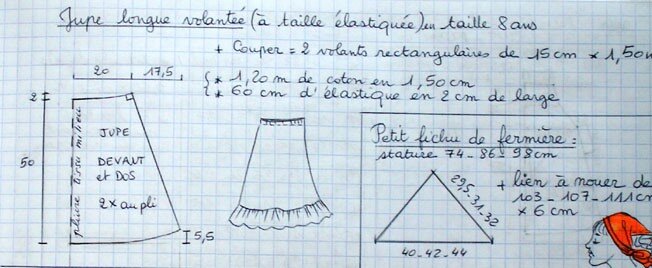 Jupe longue volantée (à taille élastiquée) en taille 8 ans
+ Couper = 2 volants rectangulaires de 15cm x 1,50m
* 1,20 m de coton en 1,50 cm
* 60 cm d'élastique en 2 cm de large
20
17,5
2
50
pliure tissu milieu
JUPE
DEVANT
et DOS
2x au pli
5,5
Petit fichu de fermière :
stature 74-86-98cm
29,5-31-32
40-42-44
+ lien à nouer de
103-107-111cm
x 6 cm